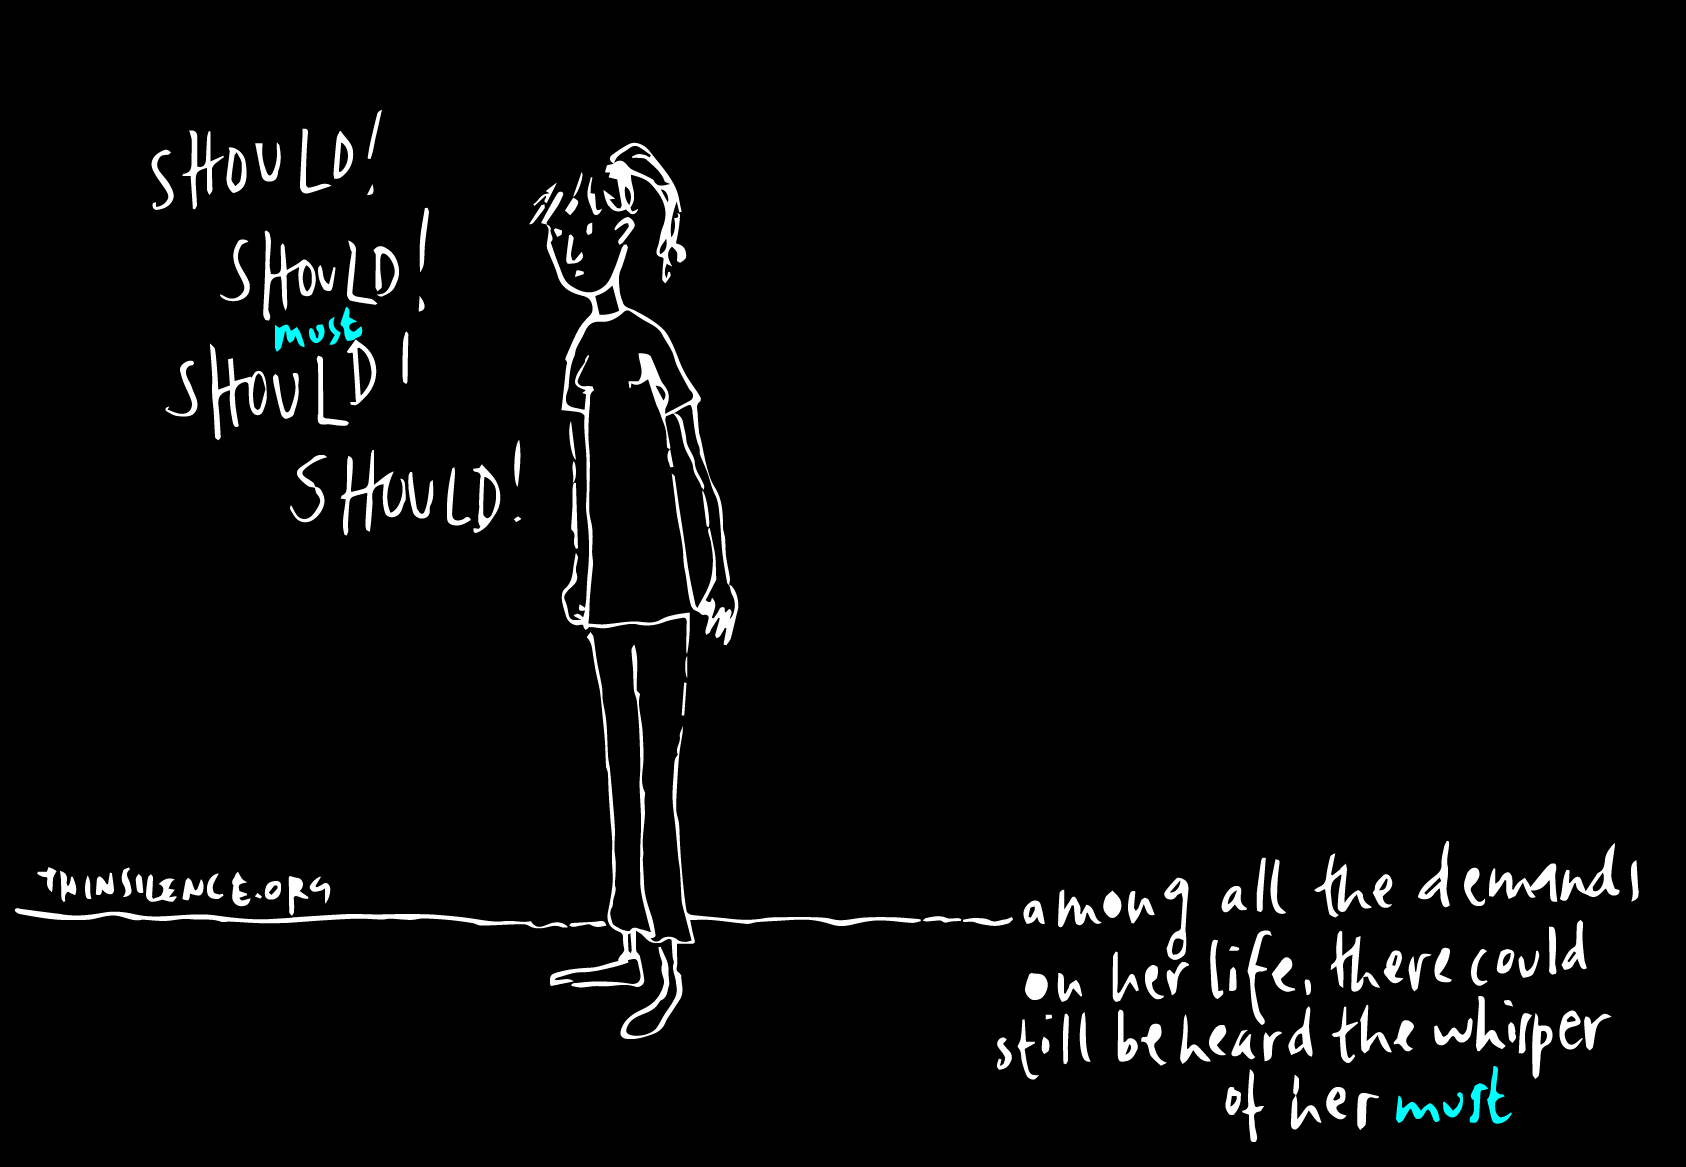 SHOULD!
SHOULD!
must
SHOULD!
SHOULD!
THINSILENCE.ORG
among all the demands
on her life, there could
still be heard the whisper
of her must